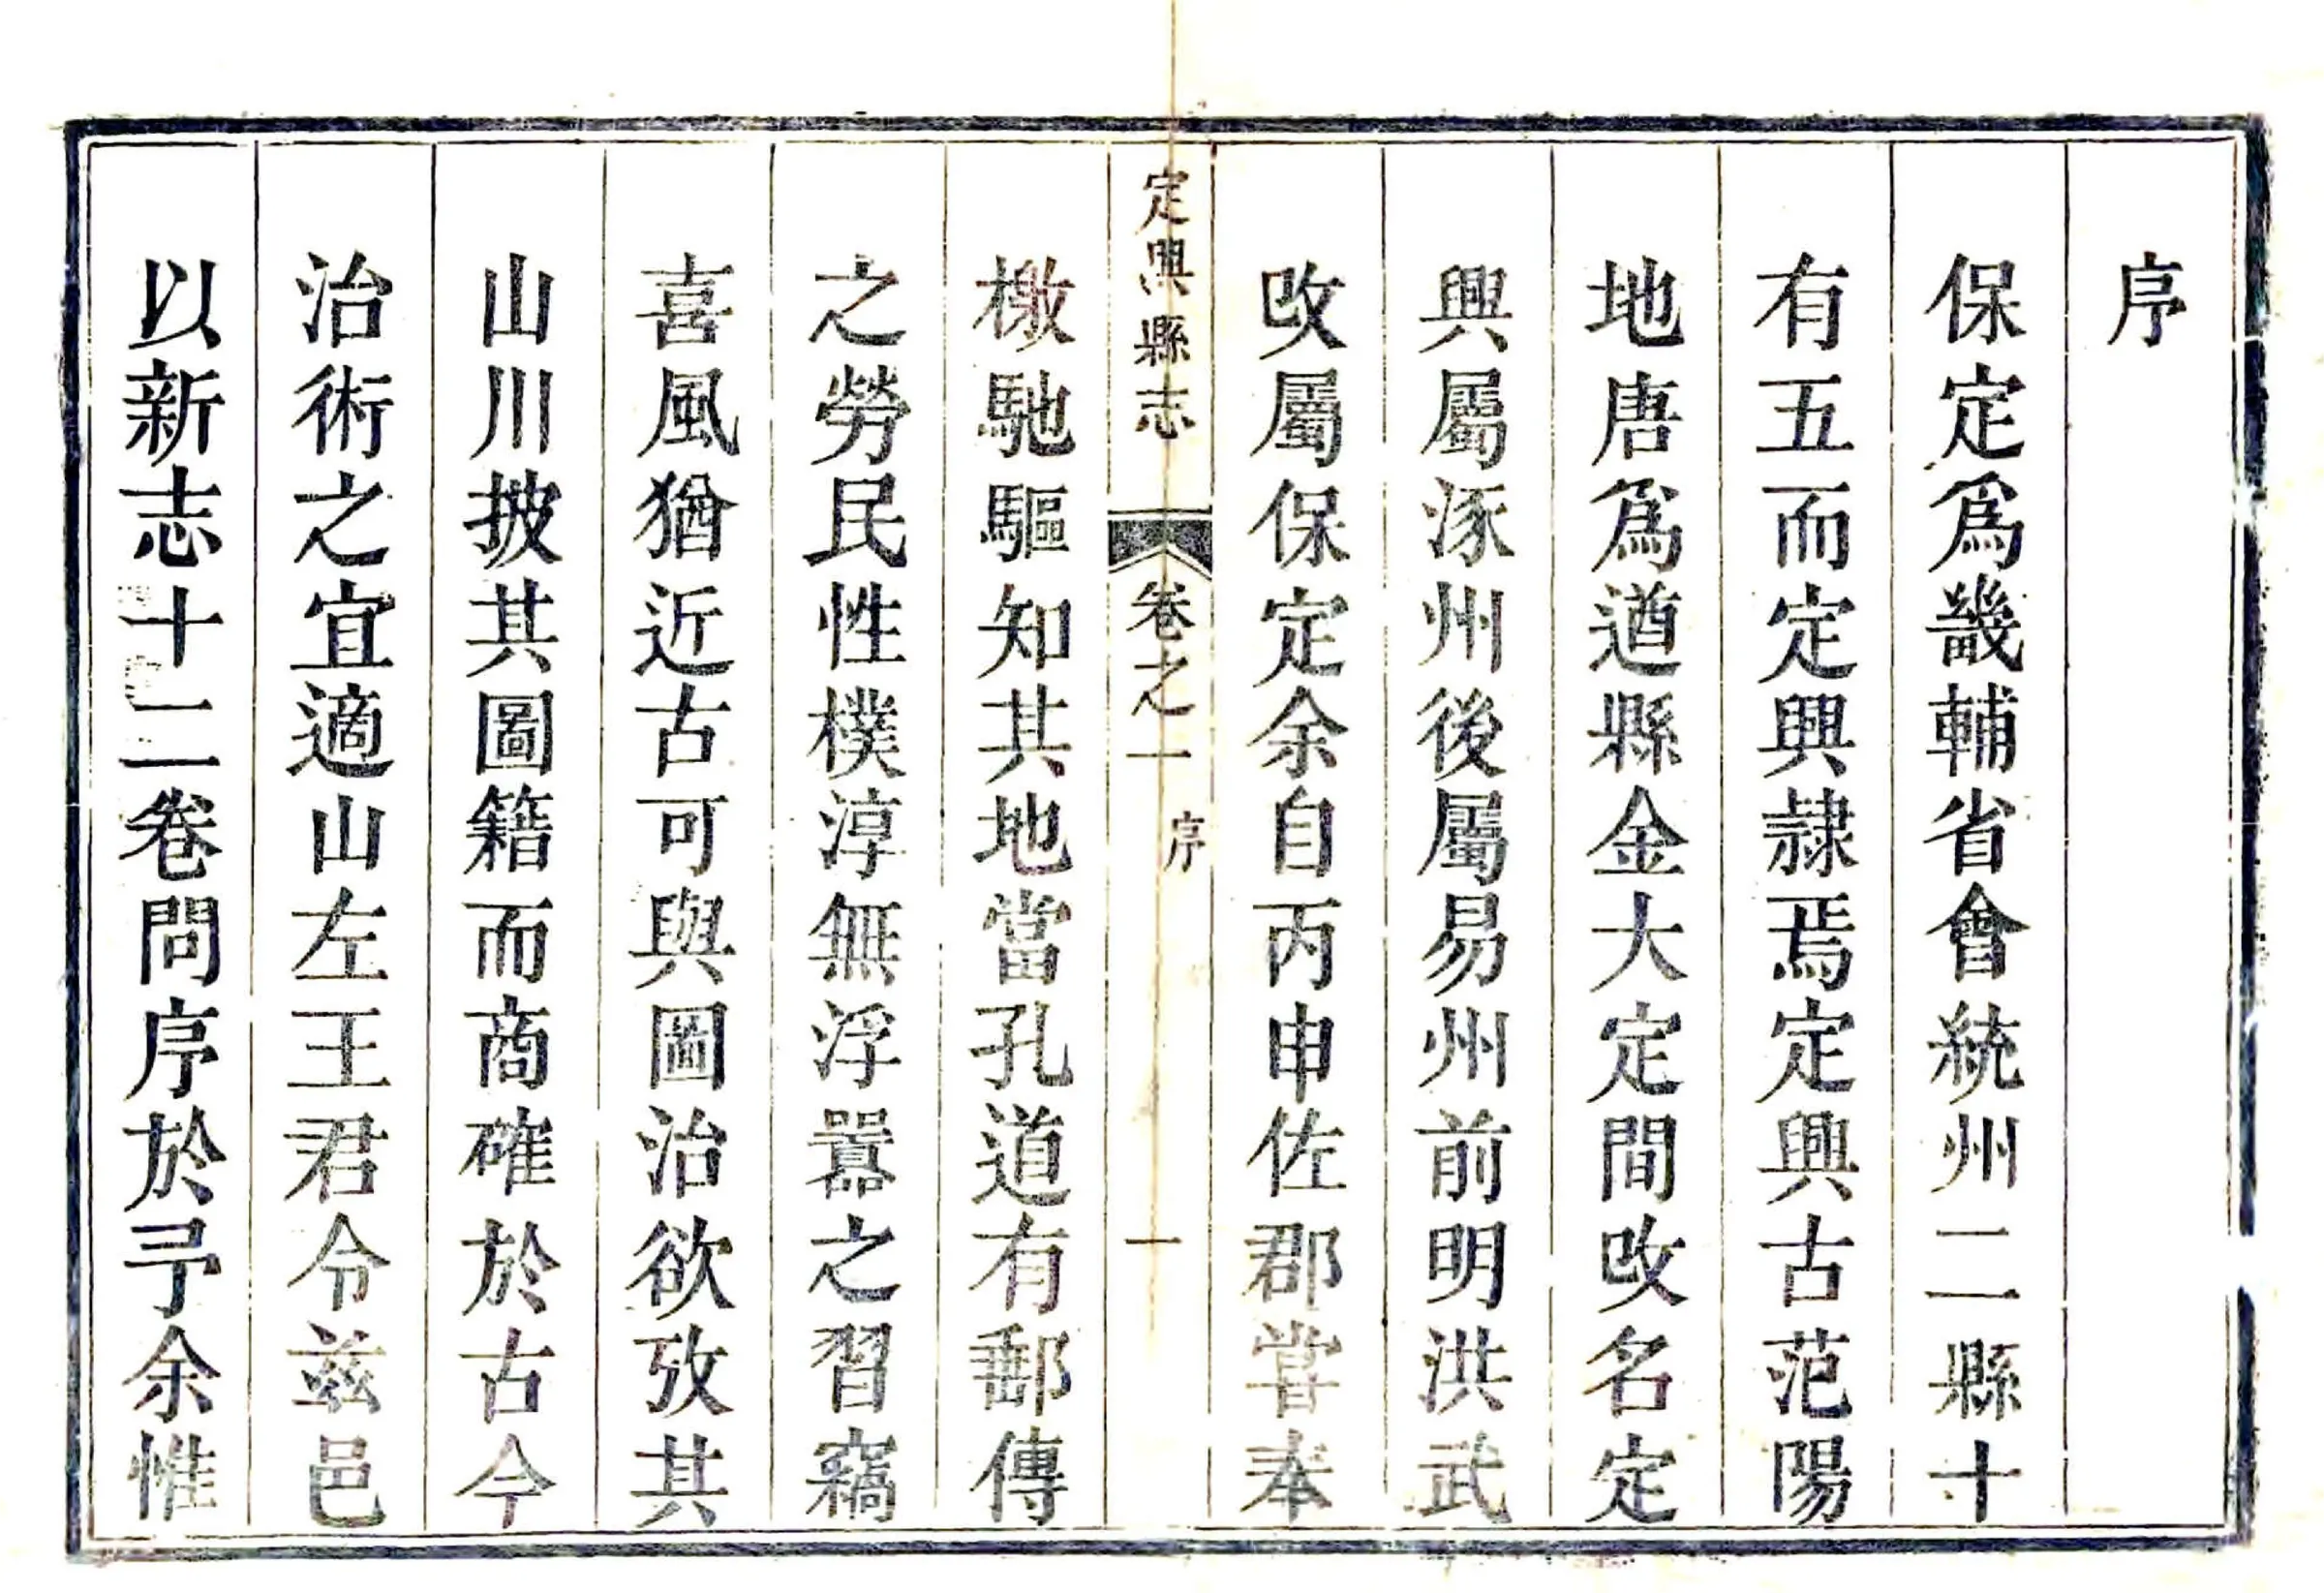 序
保定爲畿輔省會統州二縣十
有五而定興隸焉定興古范陽
地唐爲遒縣金大定間攺名定
興屬涿州後屬易州前明洪武
攺屬保定余自丙申佐郡嘗奉
定興縣志 卷之一 序 一
檄馳驅知其地當孔道有郵傳
之勞民性樸淳無浮囂之習竊
喜風猶近古可與圖治欲攷其
山川披其圖籍而商確於古今
治術之宜適山左王君令兹邑
以新志十二卷問序於予余惟